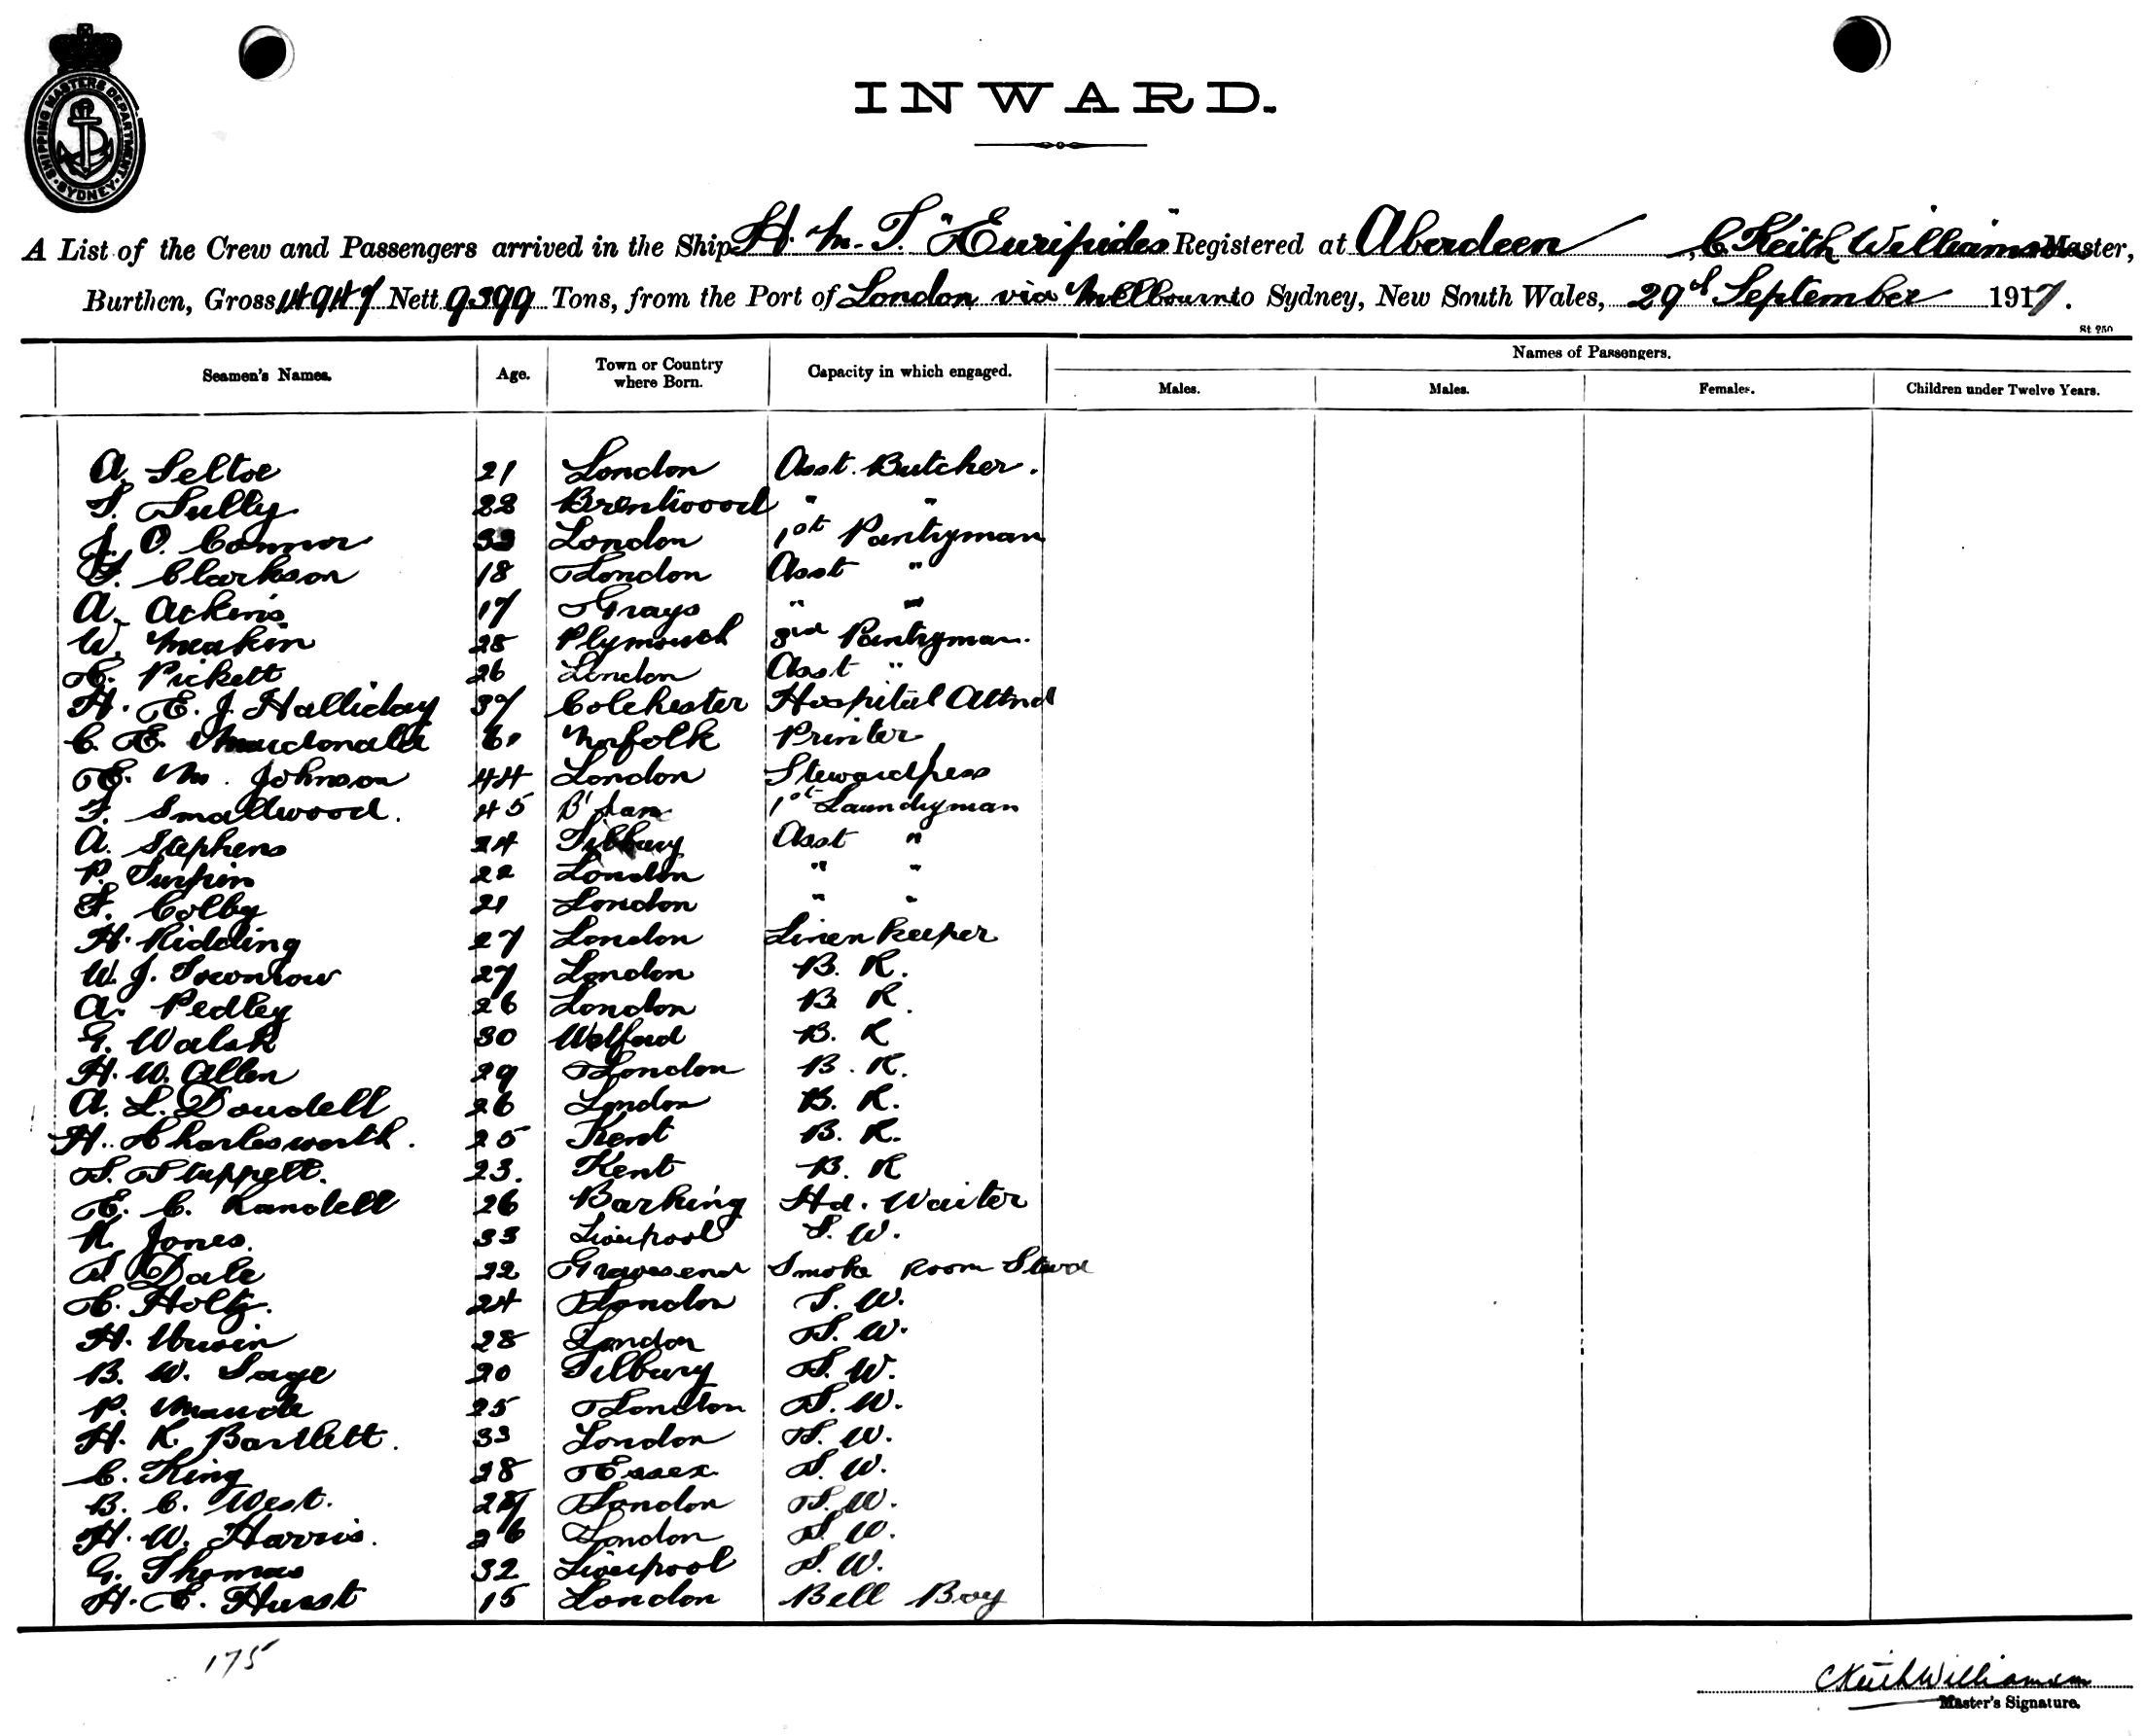 SHIPPING MASTERS DEPARTMENT SYDNEY
INWARD.
A List of the Crew and Passengers arrived in the Ship H. M. T. "Euripides" Registered at Aberdeen, C Keith Williamson Master,
Burthen, Gross 14947 Nett 9399 Tons, from the Port of London via Melbourne to Sydney, New South Wales, 29th September 1917.
St 250
Seamen's Names. Age. Town or Country where Born. Capacity in which engaged. Names of Passengers.
Males. Males. Females. Children under Twelve Years.
A. Seltoe 21 London Asst. Butcher.
T. Tully 22 Brentwood " "
J. O. Connor 33 London 1st Pantryman
F. Clarkson 18 London Asst "
A. Atkins 17 Grays " "
W. Meakin 28 Plymouth 3rd Pantryman.
C. Pickett 26 London Asst "
H. E. J. Halliday 37 Colchester Hospital Attnd
C. E. Macdonald 61 Norfolk Printer
E. M. Johnson 44 London Stewardess
F. Smallwood. 45 B'ham 1st Laundryman
A. Stephens 24 Tilbury Asst "
P. Turpin 22 London " "
F. Colby 21 London " "
H. Ridding 27 London Linen Keeper
W. J. Townrow 27 London B. R.
A. Pedley 26 London B R.
G. Walsh 30 Watford B. R
H. W. Allen 29 London B. R.
A. L. Doudell 26 London B. R.
H. Charlesworth. 25 Kent B. R.
S. Stuppell. 23. Kent B. R
E. C. Randell 26 Barking Hd. Waiter
R. Jones. 33 Liverpool S. W.
S Dale 22 Gravesend Smoke Room Stwd
C. Holtz. 24 London S. W.
H. Urwin 28 London S. W.
B. W. Sage 20 Tilbury S. W.
P. Maude 25 London S. W.
H. R. Bartlett. 33 London S. W.
C. King 28 Essex S. W.
B. C. West. 27 London S. W.
H. W. Harris. 26 London S. W.
G. Thomas 32 Liverpool S. W.
H. E. Hurst 15 London Bell Boy
175
C Keith Williamson
Master's Signature.